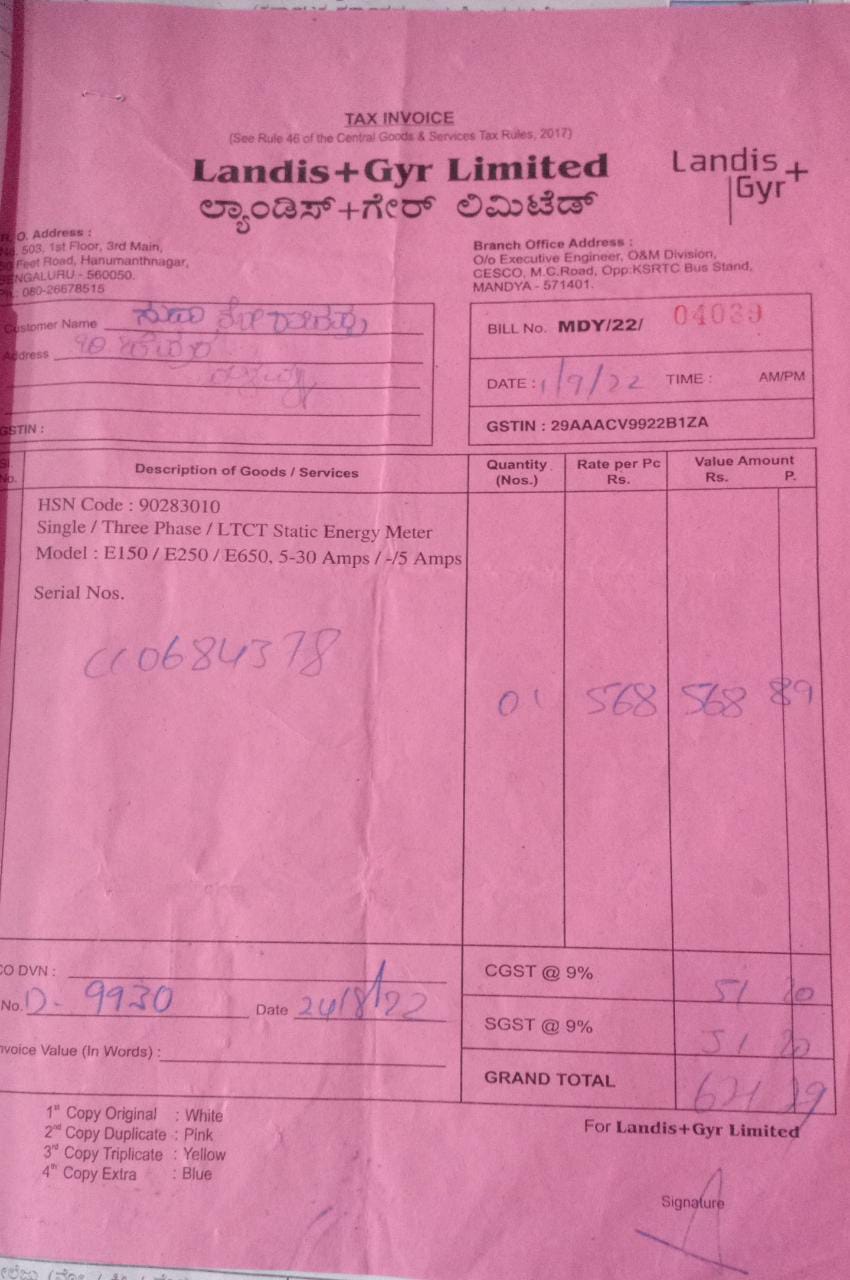 TAX INVOICE
(See Rule 46 of the Central Goods & Services Tax Rules, 2017)
Landis+Gyr Limited
ಲ್ಯಾಂಡಿಸ್+ಗೇರ್ ಲಿಮಿಟೆಡ್
Landis
Gyr+
O. Address :
503, 1st Floor, 3rd Main,
Feet Road, Hanumanthnagar,
BENGALURU - 560050.
Ph.: 080-26678515
Branch Office Address :
O/o Executive Engineer, O&M Division,
CESCO, M.C.Road, Opp:KSRTC Bus Stand,
MANDYA - 571401.
Customer Name
Address
GSTIN :
BILL No. MDY/22/ 04039
DATE : 1/9/22 TIME : AM/PM
GSTIN : 29AAACV9922B1ZA
Sl. No. Description of Goods / Services Quantity (Nos.) Rate per Pc Rs. Value Amount Rs. P.
HSN Code : 90283010
Single / Three Phase / LTCT Static Energy Meter
Model : E150 / E250 / E650, 5-30 Amps / -/5 Amps
Serial Nos.
CC0684378
01 568 568 89
CO DVN :
No. D- 9930 Date 24/8/22
nvoice Value (In Words) :
CGST @ 9% 51 20
SGST @ 9% 51 20
GRAND TOTAL 671 29
1st Copy Original : White
2nd Copy Duplicate : Pink
3rd Copy Triplicate : Yellow
4th Copy Extra : Blue
For Landis+Gyr Limited
Signature